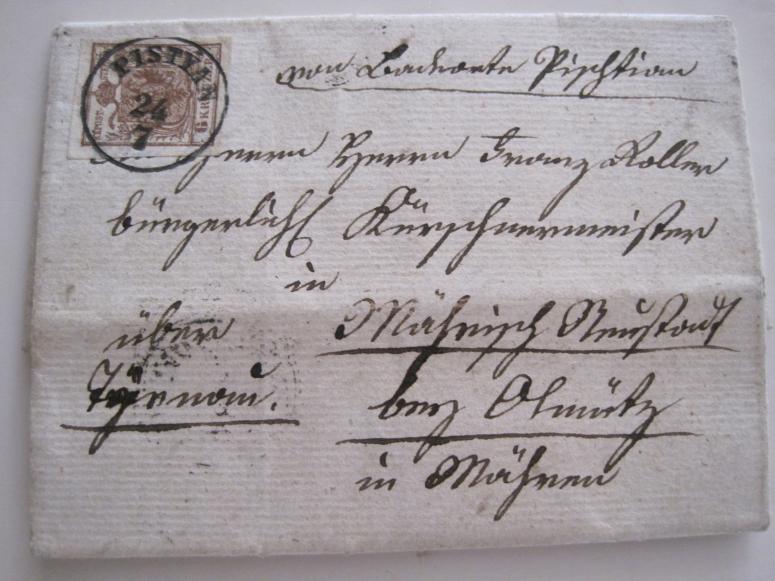 PISTYAN
24
7
6 KR
von Badeorte Pischtian
Herrn Herrn Franz Koller
bürgerlich Kürschnermeister
in
über Mährisch Neustadt
Tyrnau. bey Olmütz
in Mähren